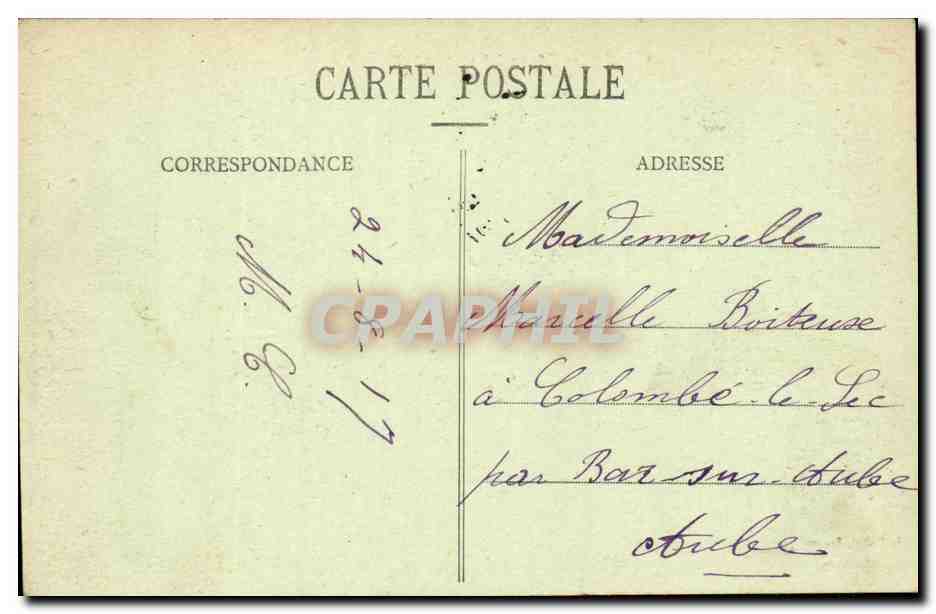 CARTE POSTALE
CORRESPONDANCE
ADRESSE
24-8-17
Mademoiselle
Marcelle Boiteuse
à Colombé-le-Sec
par Bar-sur-Aube
Aube
CRAPHIL